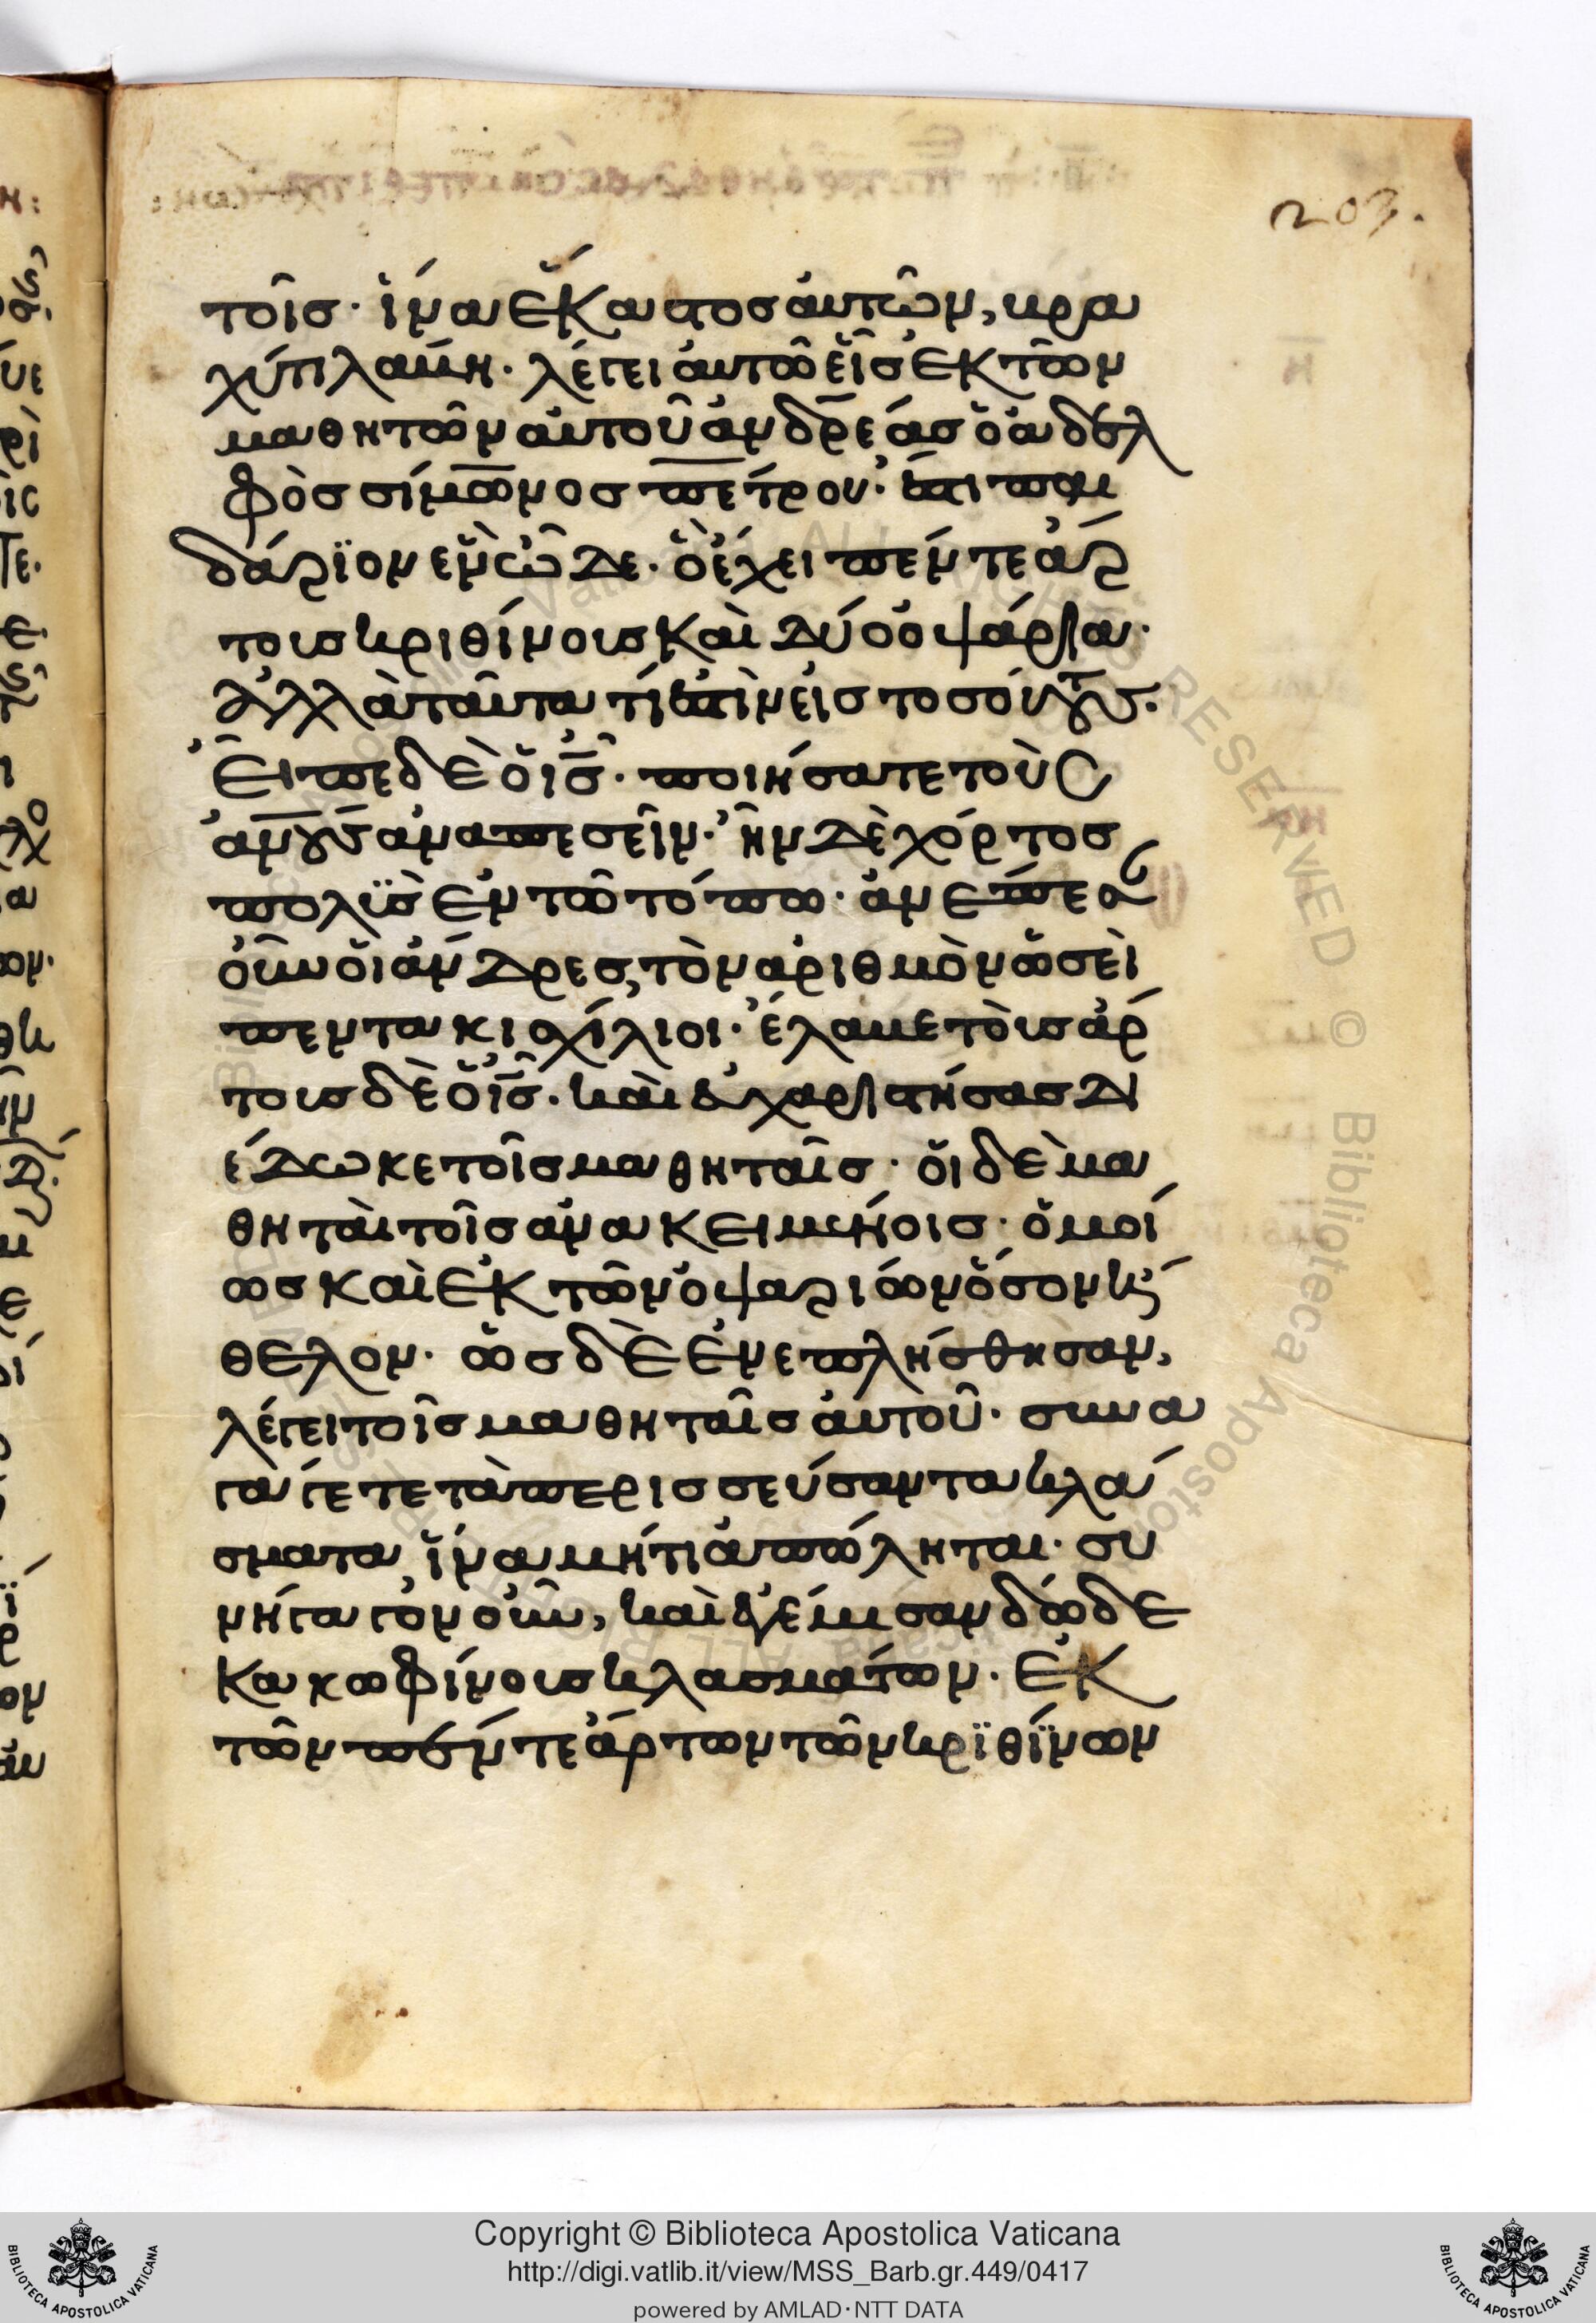 203.
τοῖσ· ἵνα ἕκαστοσ ἀυτῶν, βρα
χύ τι λάβη. λέγει ἀυτῶ εἷσ ἐκ τῶν
μαθητῶν ἀυτοῦ ἀνδρέασ ὁ ἀδελ
φὸσ σίμωνοσ πέτρου· ἔστι παι
δάριον ἓν ὧδε. ὃ ἔχει πέντε ἄρ
τουσ κριθίνουσ καὶ δύο ὀψάρια·
ἀλλὰ ταῦτα τί ἐστὶν εἰσ τοσούτουσ.
εἶπε δὲ ὁ ισ· ποιήσατε τοὺσ
ἀνουσ ἀναπεσεῖν. ἦν δὲ χόρτοσ
πολὺσ ἐν τῶ τόπω. ἀνέπεσον
οὖν οἱ ἄνδρεσ, τὸν ἀριθμὸν ὡσεὶ
πεντακισχίλιοι. ἔλαβε τοὺσ ἄρ
τουσ δὲ ὁ ισ. καὶ ἐυχαριστήσασ δι
έδωκε τοῖσ μαθηταῖσ. οἱ δὲ μα
θηταὶ τοῖσ ἀνακειμένοισ. ὁμοί
ωσ καὶ ἐκ τῶν ὀψαρίων ὅσον ἤ
θελον. ὡσ δὲ ἐνεπλήσθησαν,
λέγει τοῖσ μαθηταῖσ ἀυτοῦ. συνα
γάγετε τὰ περισσεύσαντα κλά
σματα ἵνα μήτι ἀπώληται. συ
νήγαγον οὖν, καὶ ἐγέμισαν δώδε
κα κοφίνουσ κλασμάτων. ἐκ
τῶν πέντε ἄρτων τῶν κριθίνων
Copyright © Biblioteca Apostolica Vaticana
http://digi.vatlib.it/view/MSS_Barb.gr.449/0417
powered by AMLAD·NTT DATA